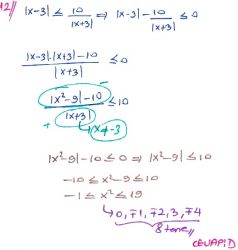 12) |x-3| ≤ 10/|x+3| ⇒ |x-3| - 10/|x+3| ≤ 0
|x-3|.|x+3|-10/|x+3| ≤ 0
|x²-9|-10/|x+3| ≤ 10
+ x≠-3
|x²-9|-10 ≤ 0 ⇒ |x²-9| ≤ 10
-10 ≤ x²-9 ≤ 10
-1 ≤ x² ≤ 19
0, ∓1, ∓2, 3, ∓4
8 tane
CEVAP: D